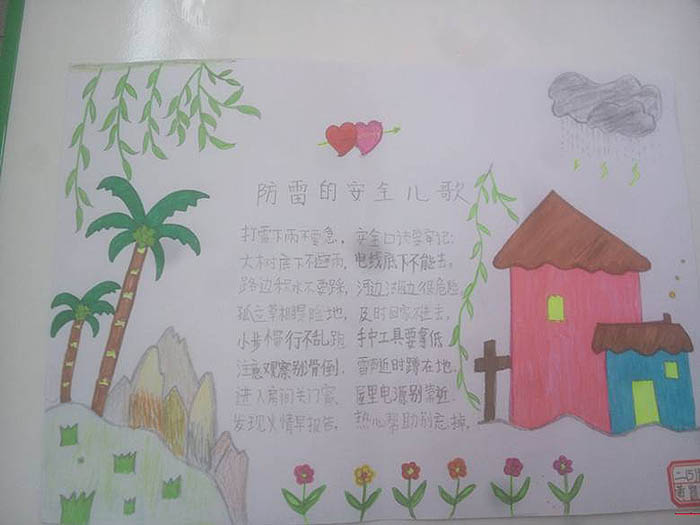 防雷的安全儿歌
打雷下雨不要急,安全口诀要牢记:
大树底下不避雨,电线底下不能去。
路边积水不要踩,河边湖边很危险
孤立草棚冒险地,及时回家难进去。
小步慢行不乱跑 手中工具要拿低
注意观察别滑倒. 雷近时蹲在地.
进入房间关门窗, 屋里电源别靠近.
发现火情早报告, 热心帮助别忘掉.